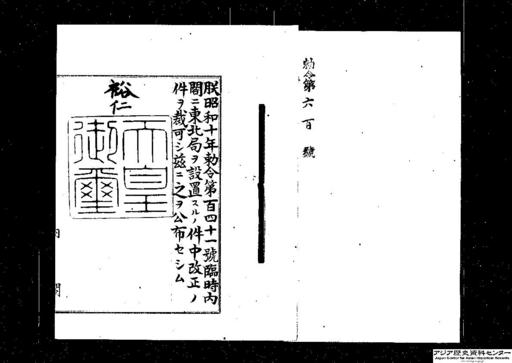 勅令第六百號
朕昭和十年勅令第百四十一號臨時内
閣ニ東北局ヲ設置スルノ件中改正ノ
件ヲ裁可シ茲ニ之ヲ公布セシム
裕仁
天皇
御璽
内閣
アジア歴史資料センター
Japan Center for Asian Historical Records